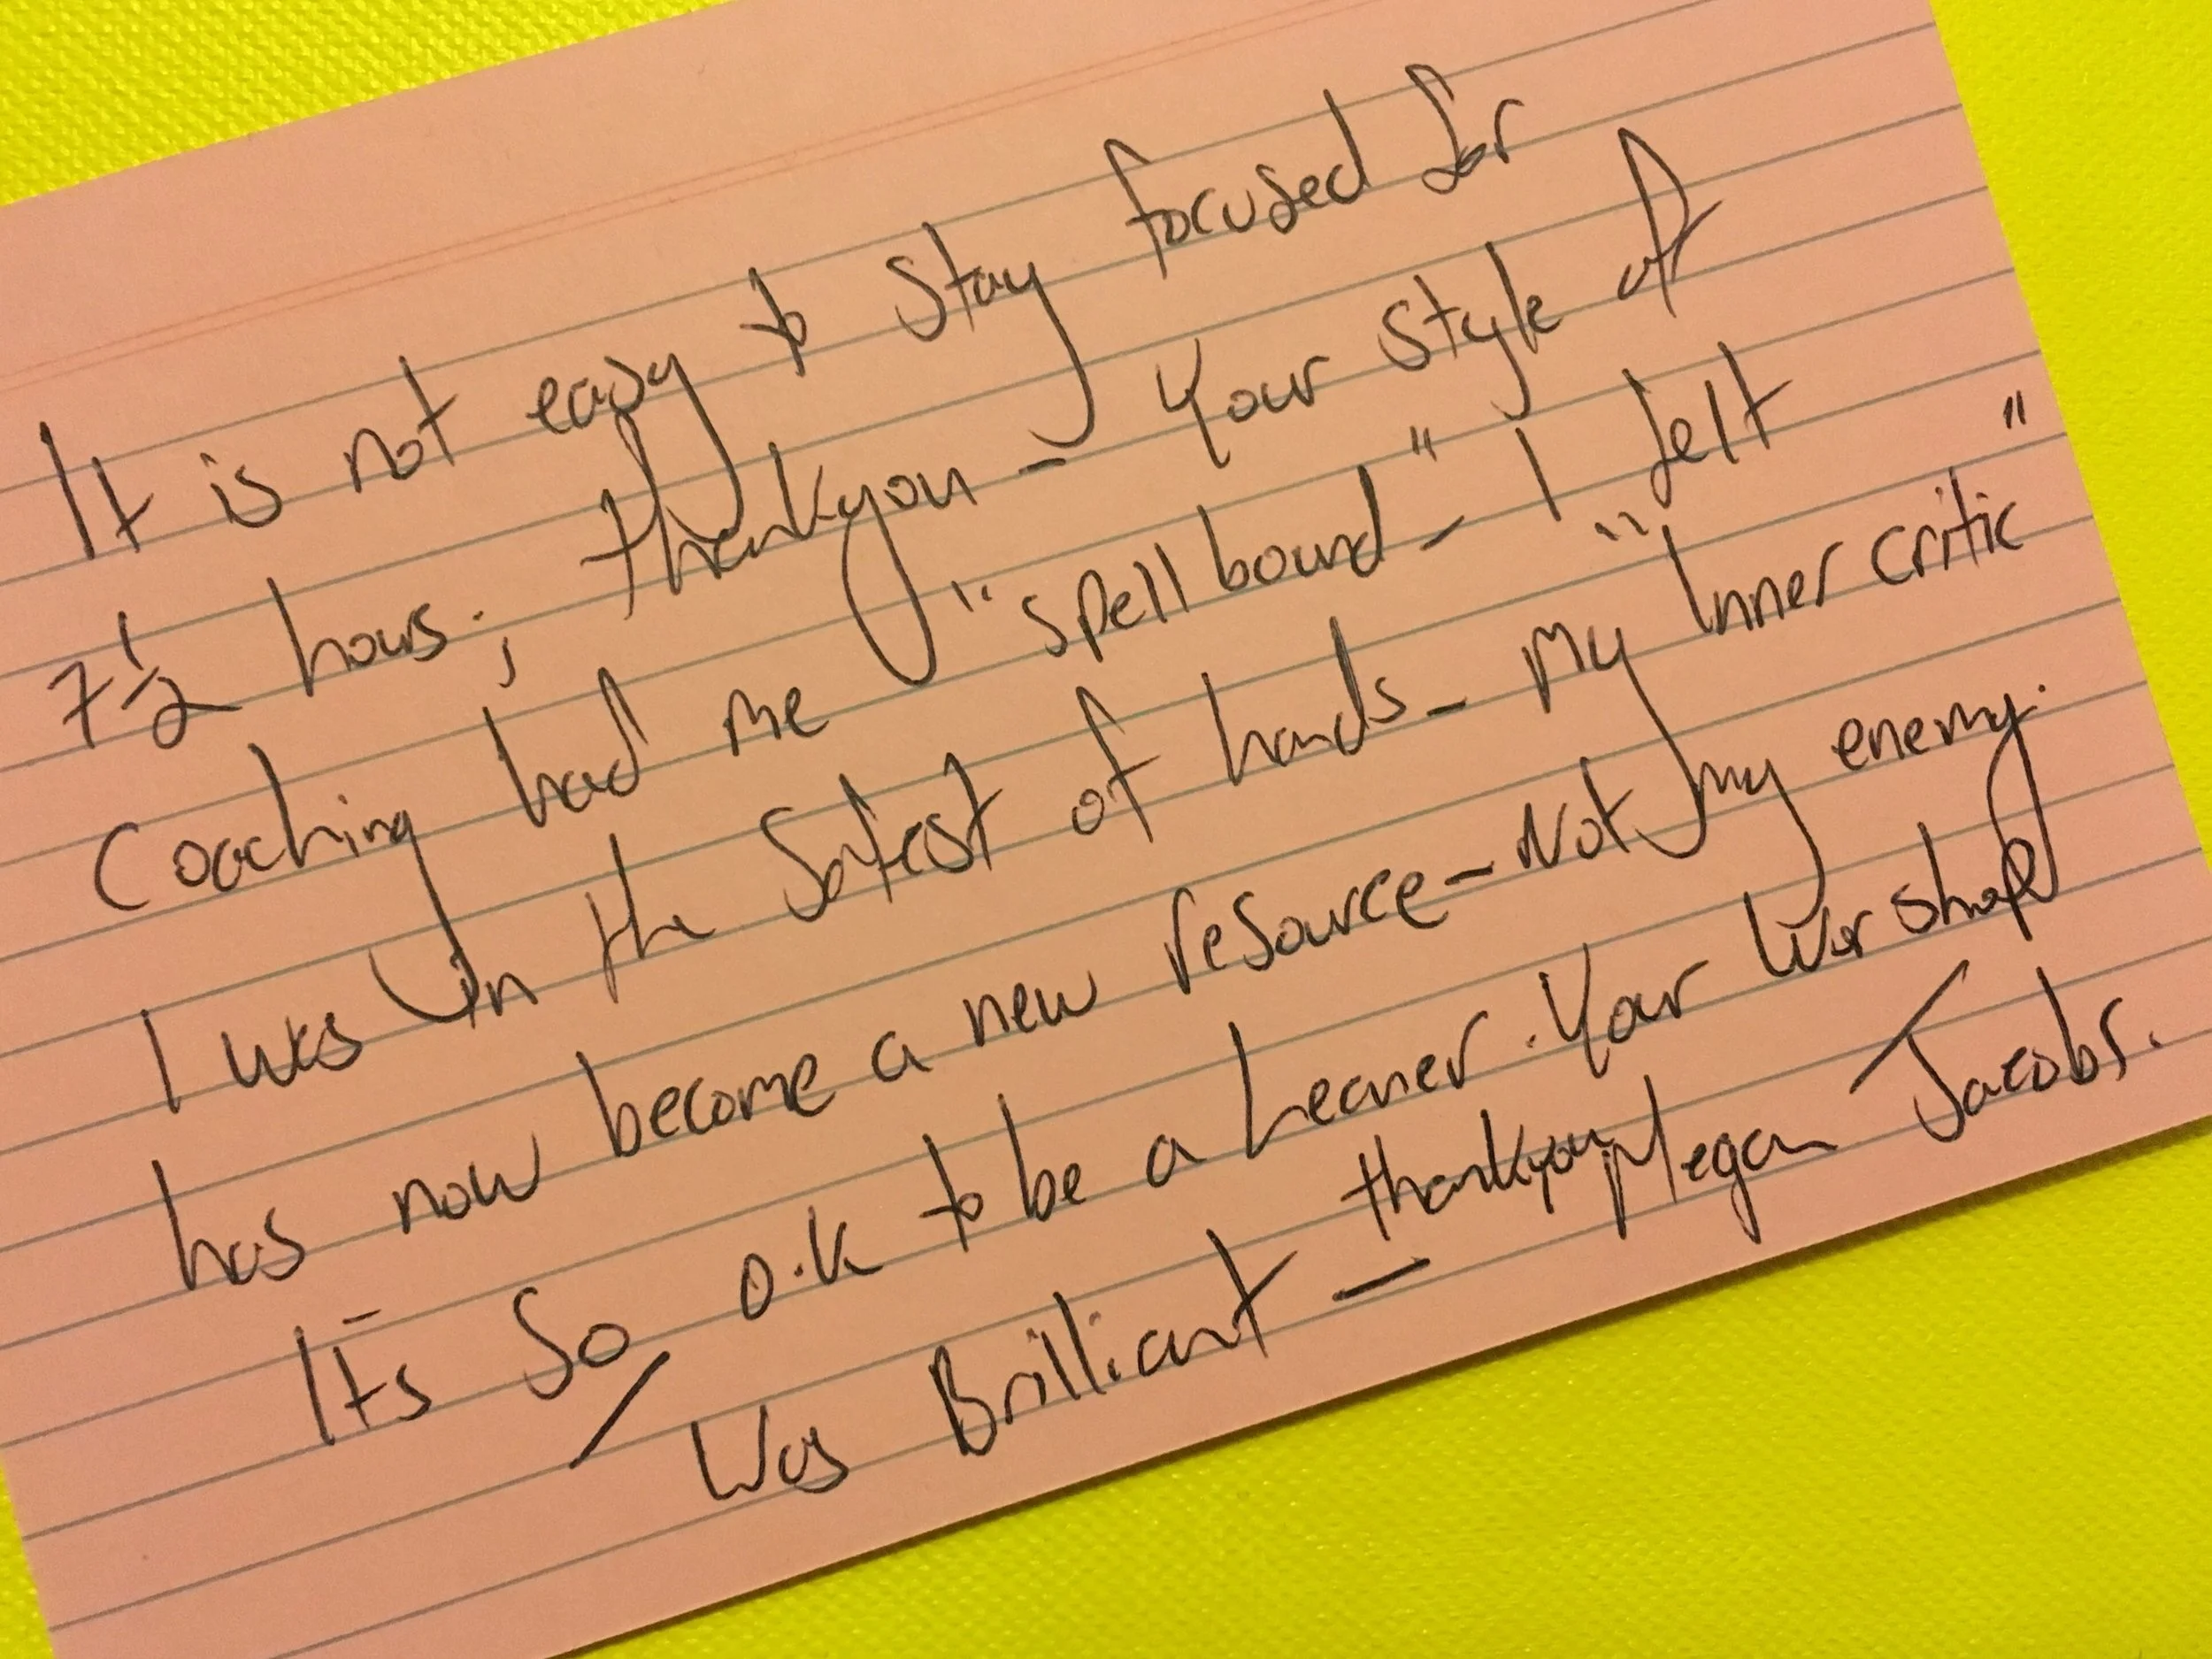 It is not easy to stay focused for
7 1/2 hours; thankyou - Your style of
Coaching had me "spell bound" - I felt
I was in the safest of hands - my "Inner critic"
has now become a new resource - Not my enemy.
It's So o.k to be a Learner. Your Worshop
Was Brilliant - thankyou Megan Jacobs.